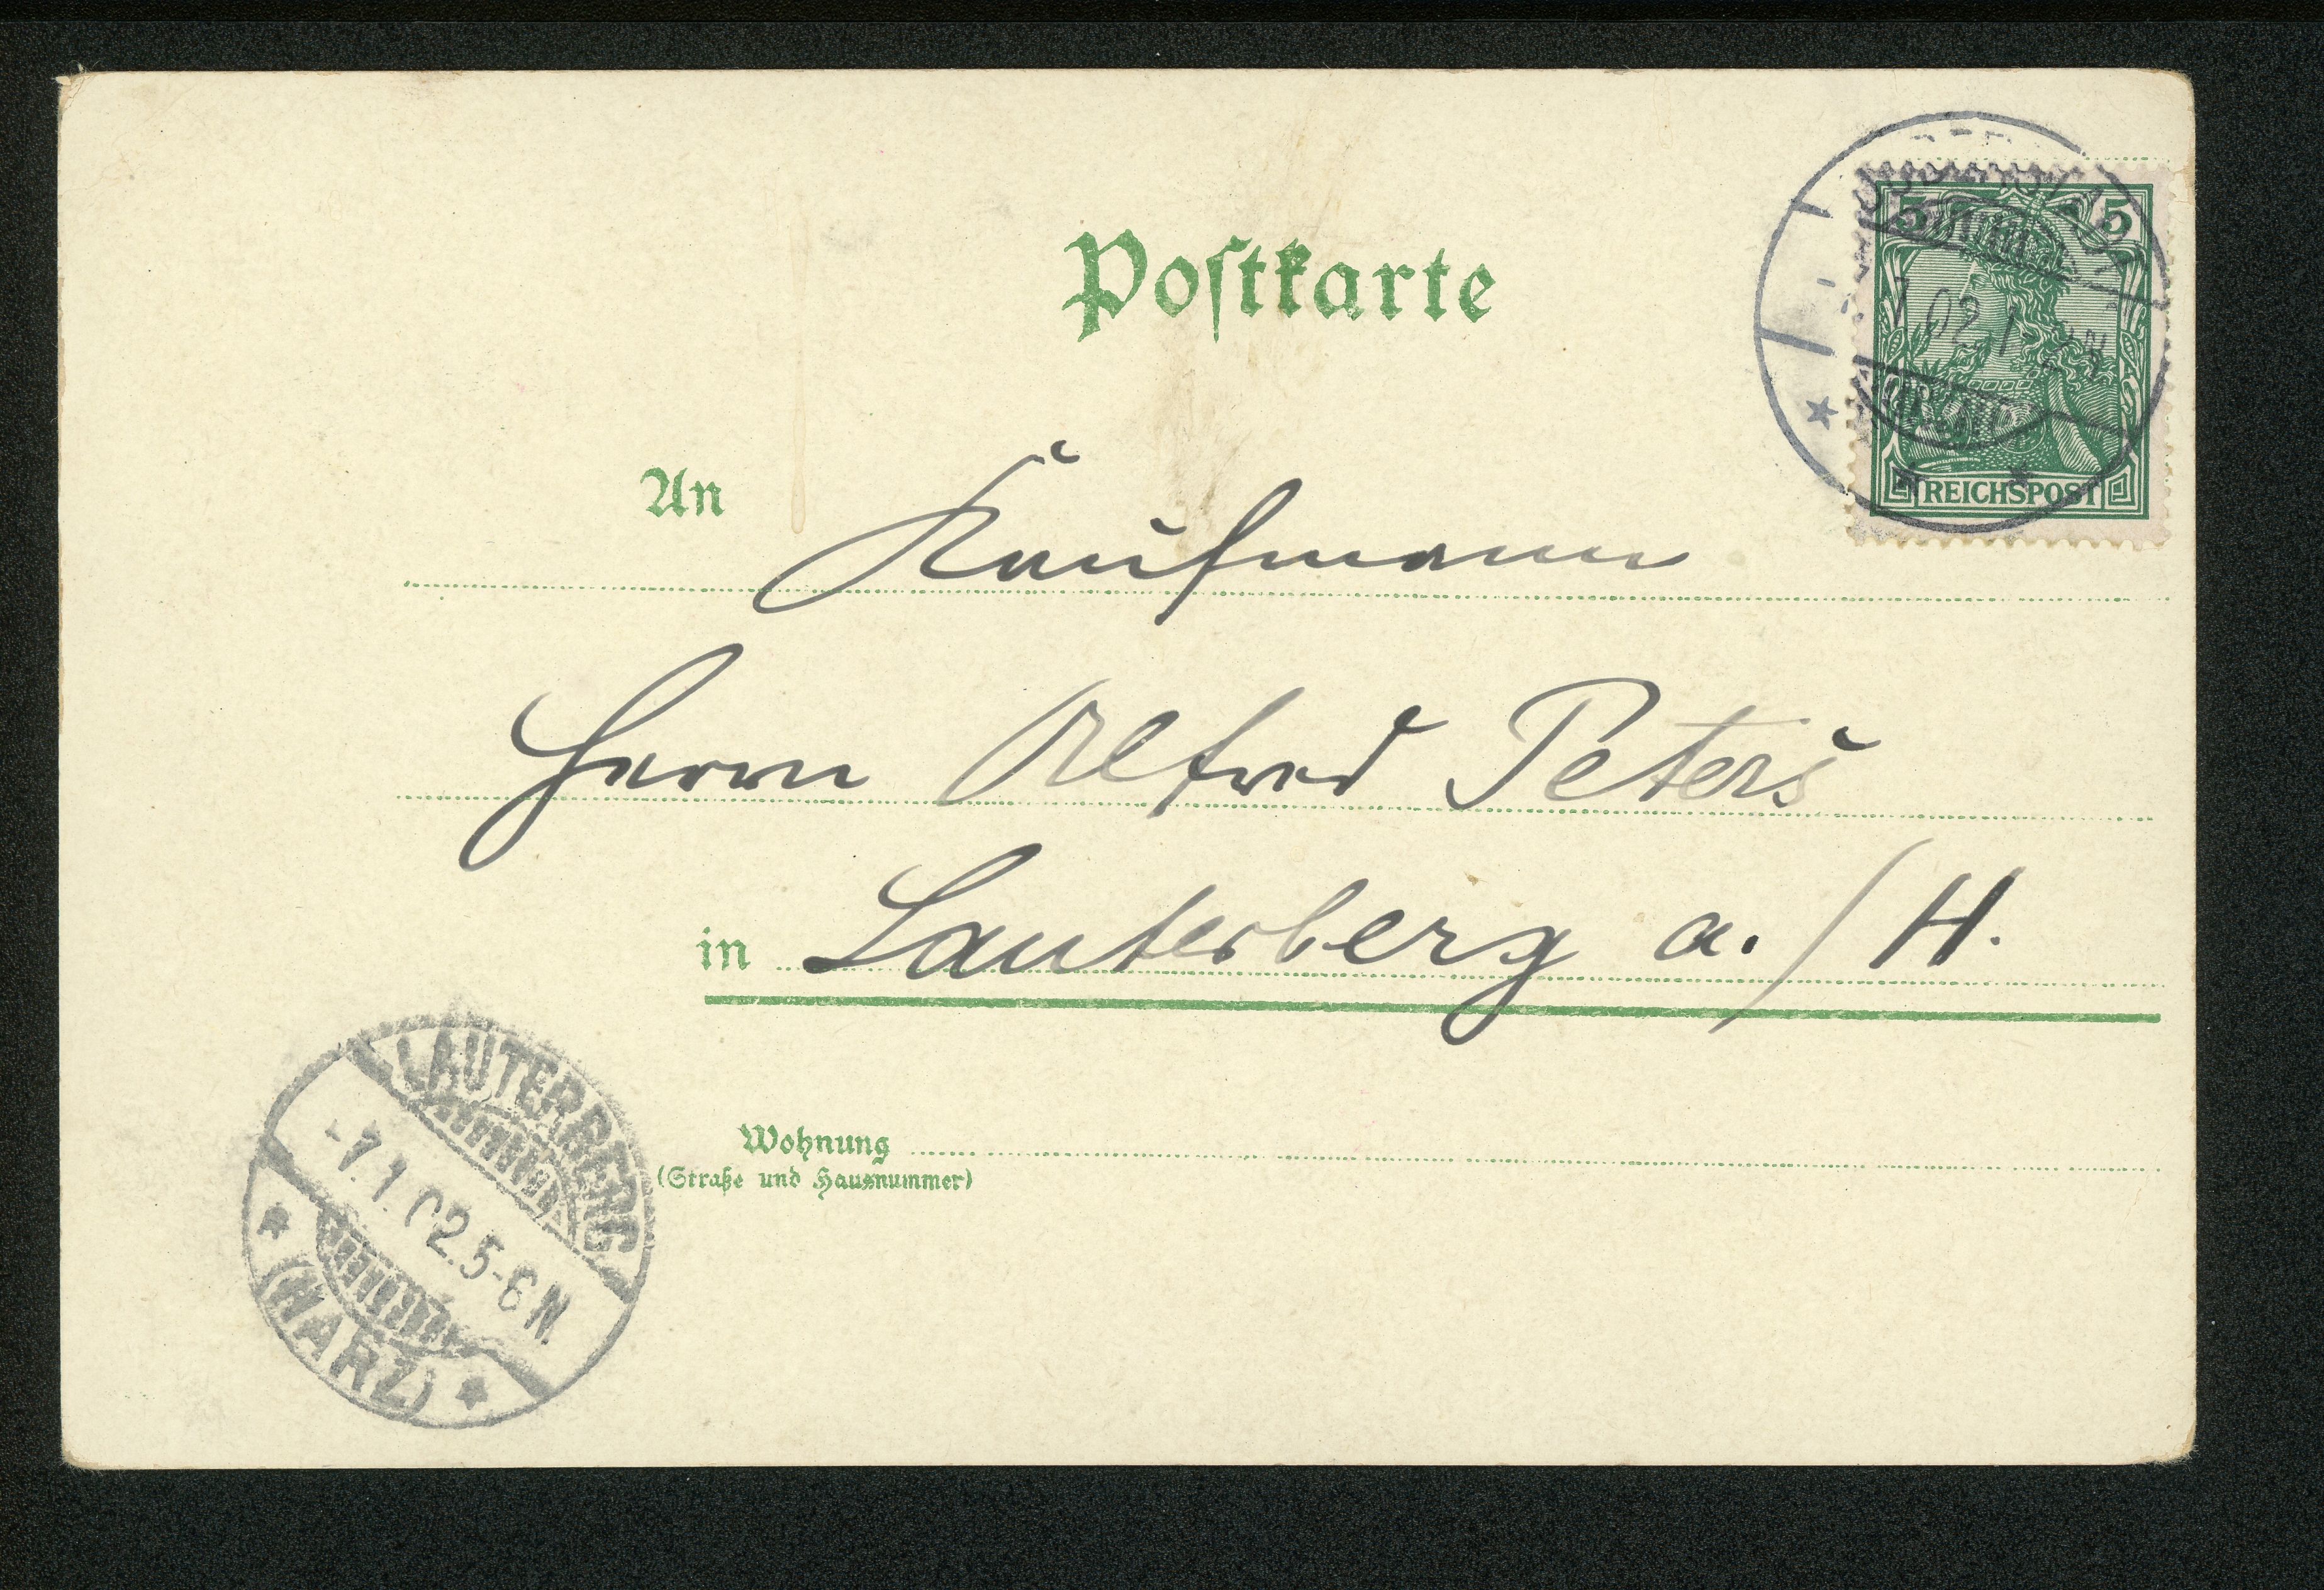 Postkarte
5 5
7 1 02 1
REICHSPOST
An Kaufmann
Herrn Alfred Peters
in Lauterberg a./H.
Wohnung
(Straße und Hausnummer)
LAUTERBERG
-7.1.02.5-6 N.
(HARZ)